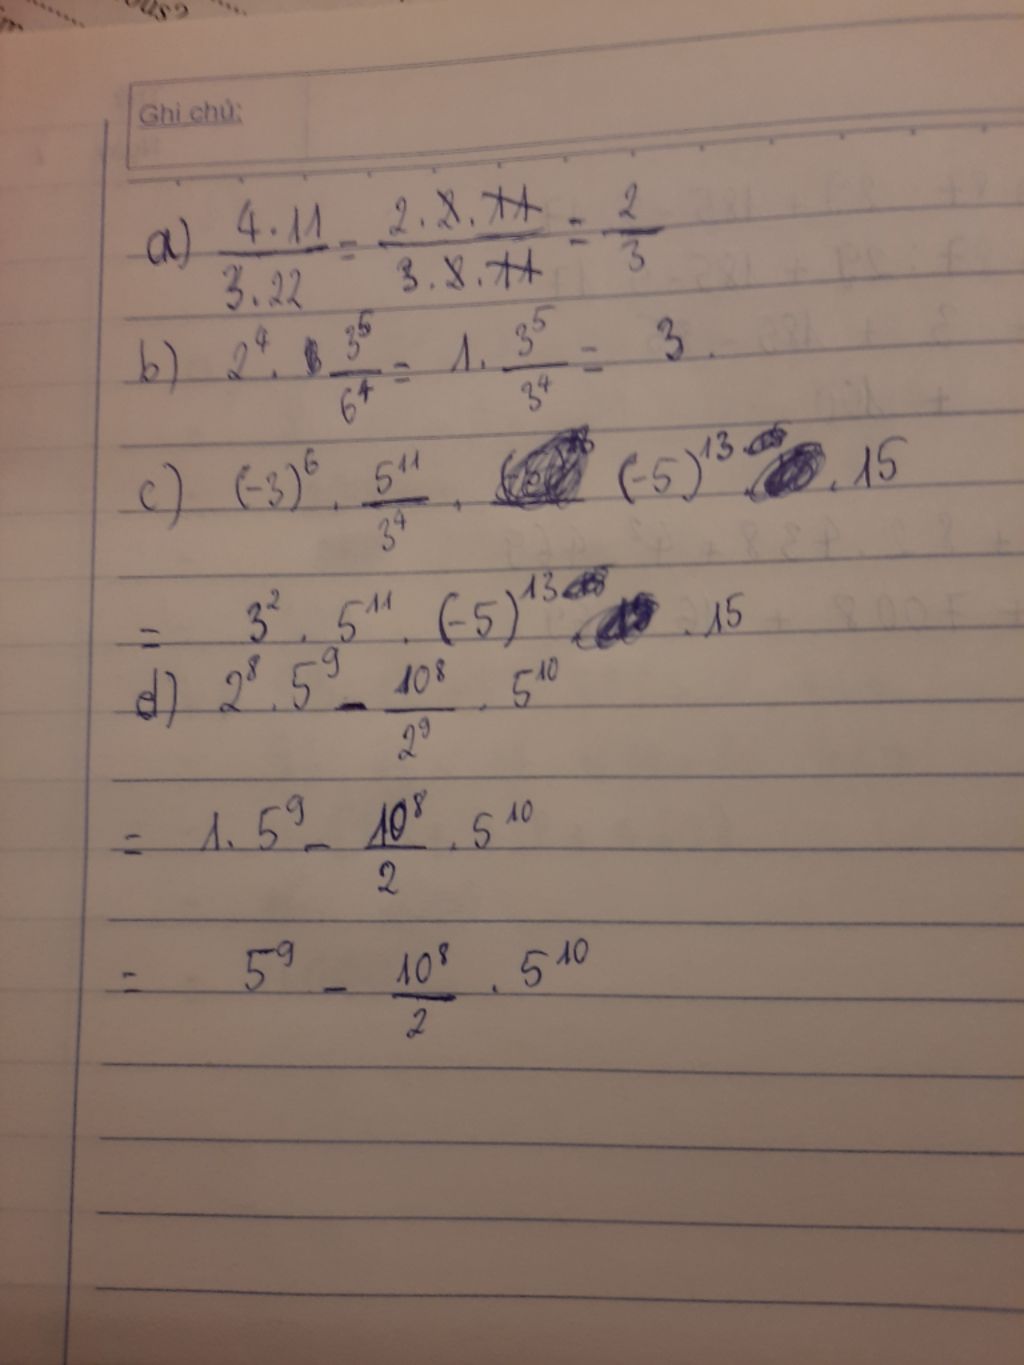 Ghi chú:
a) 4.11/3.22 = 2.2.11/3.2.11 = 2/3
b) 2⁴ . 3⁵/6⁴ = 1. 3⁵/3⁴ = 3.
c) (-3)⁶ . 5¹¹/3⁴ . (-5)¹³ . 15
= 3² . 5¹¹ . (-5)¹³ . 15
d) 2⁸ . 5⁹ - 10⁸/2⁹ . 5¹⁰
= 1. 5⁹ - 10⁸/2 . 5¹⁰
= 5⁹ - 10⁸/2 . 5¹⁰